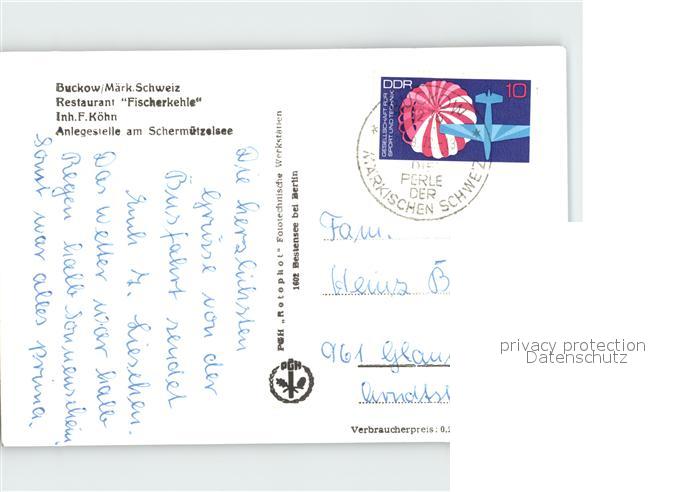 Buckow/Märk.Schweiz
Restaurant "Fischerkehle"
Inh.F.Köhn
Anlegestelle am Schermützelsee
Die herzlichsten
Grüsse von der
Busfahrt sendet
Euch
Das Wetter war halb
Regen halb Sonnenschein
Sonst war alles prima.
PGH „Rotophot" Fototechnische Werkstätten
1602 Bestensee bei Berlin
PGH
DDR
10
GESELLSCHAFT FÜR
SPORT UND TECHNIK
DIE
PERLE
DER
MÄRKISCHEN SCHWEIZ
Fam.
Heinz B
961 Glau
Arndtst
Verbraucherpreis: 0,2
privacy protection
Datenschutz